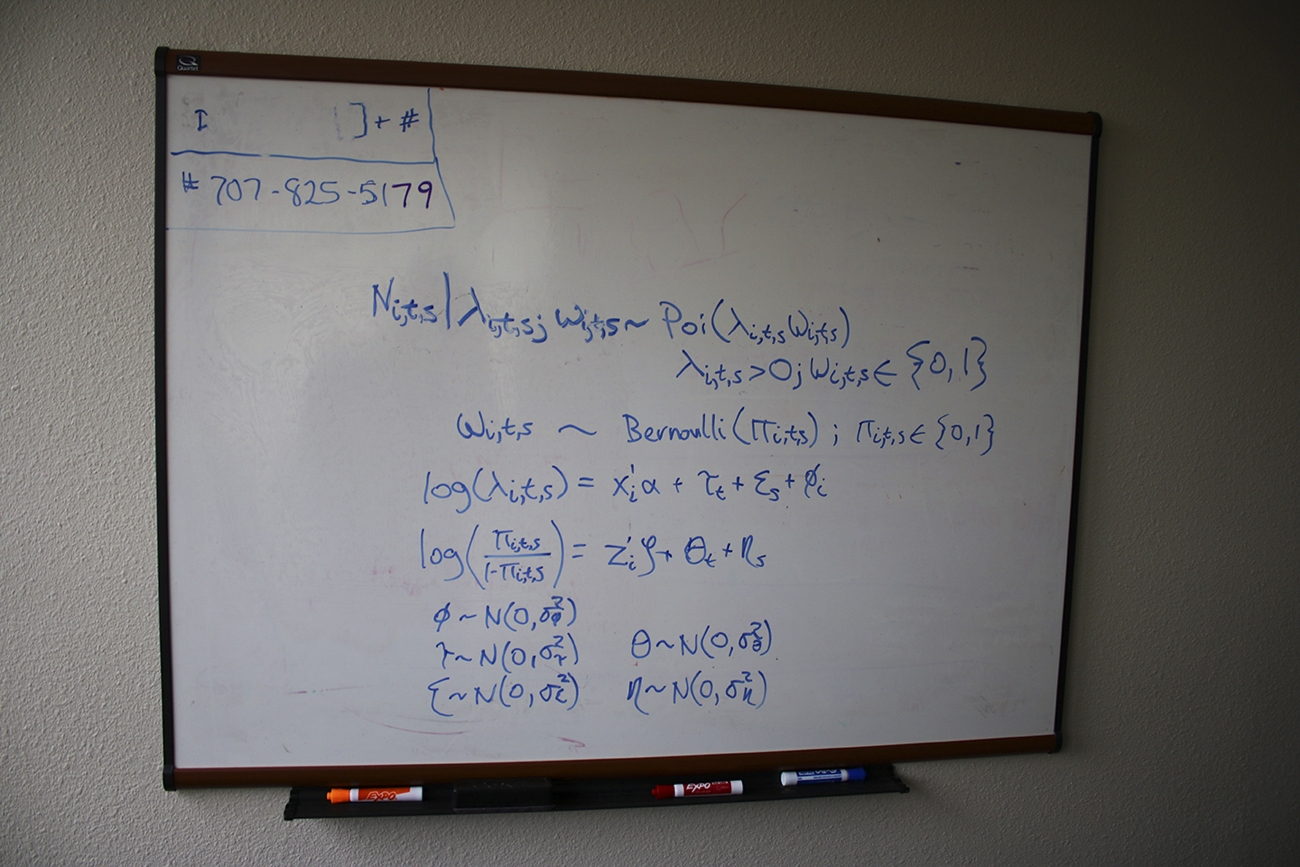 Quartet
I ]+ #
# 707-825-5179
N_{i,t,s} | λ_{i,t,s}; ω_{i,t,s} ~ Poi(λ_{i,t,s} ω_{i,t,s})
λ_{i,t,s} > 0; ω_{i,t,s} ∈ {0,1}
ω_{i,t,s} ~ Bernoulli(π_{i,t,s}) ; π_{i,t,s} ∈ {0,1}
log(λ_{i,t,s}) = x'_i α + τ_t + ξ_s + φ_i
log(π_{i,t,s} / 1-π_{i,t,s}) = z'_i ζ + θ_t + η_s
φ ~ N(0,σ²_φ)
τ ~ N(0,σ²_τ) θ ~ N(0,σ²_θ)
ξ ~ N(0,σ²_ξ) η ~ N(0,σ²_η)
EXPO EXPO